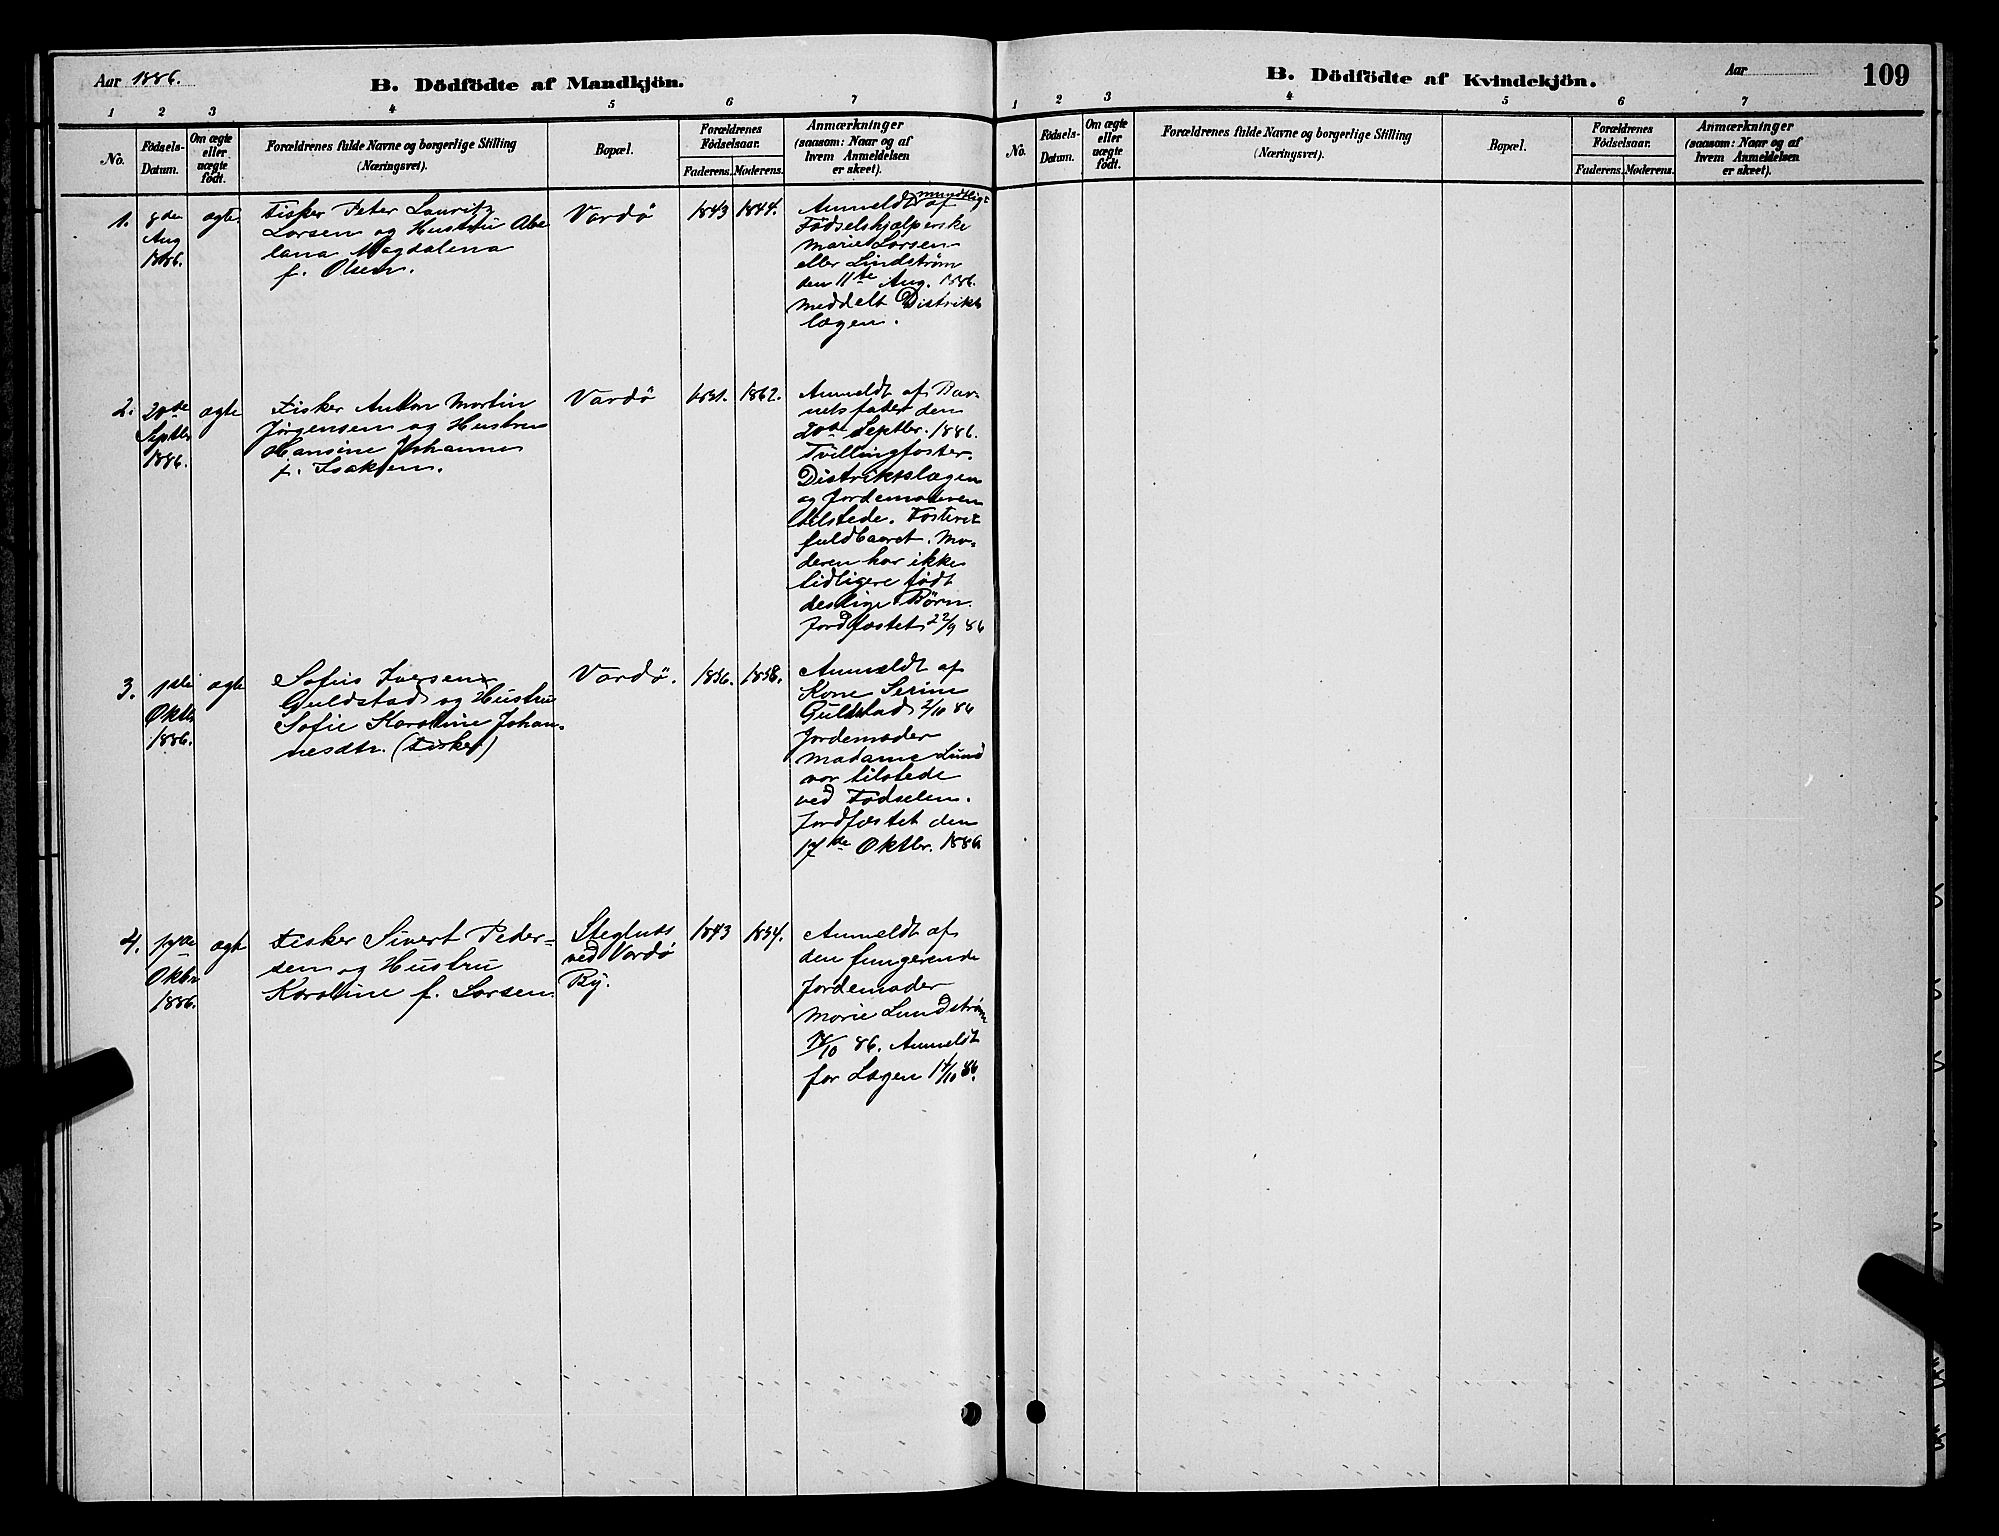 Aar 1886.
B. Dödfödte af Mandkjön.
1 2 3 4 5 6 7
No.
Födsels-
Datum.
Om ægte
eller
uægte
födt.
Forældrenes fulde Navne og borgerlige Stilling
(Næringsvei).
Bopæl.
Forældrenes
Födselsaar.
Faderens. Moderens.
Anmærkninger
(saasom: Naar og af
hvem Anmeldelsen
er skeet).
1.
8de
Aug
1886.
ægte
Fisker Peter Lauritz
Larsen og Hustru Abe-
lana Magdalena
f. Olsen.
Vardø
1843
1844.
mundtligt
Anmeldt af
Fødselshjælperske
Marie Larsen
eller Lindstrøm
den 11te Aug. 1886.
Meddelt Distrikts
lægen.
2.
20de
Septbr
1886.
ægte
Fisker Anton Martin
Jørgensen og Hustru
Hansine Johanne
f. Isaksen.
Vardø
1862.
Anmeldt af Bar-
nets fader den
20de Septbr. 1886.
Tvillingfoster.
Distriktslægen
og Jordemoderen
tilstede. Fosteret
fuldbaaret. Mo-
deren har ikke
tidligere født
deslige Børn.
Jordfæstet 22/9 86
3.
1ste
Oktbr
1886.
ægte
Sofus Iversen
Guldstad og Hustru
Sofie Karoline Johan-
nesdtr. (Fisker)
Vardø.
1856.
1858.
Anmeldt af
Kone Serine
Guldstad 2/10 86
Jordemoder
Madame Lund
var tilstede
ved Fødselen.
Jordfæstet den
17de Oktbr. 1886
4.
Oktbr
1886.
ægte
Fisker Sivert Peder-
sen og Hustru
Karoline f. Larsen.
ved Vardø
By.
1843
1854.
Anmeldt af
den fungerende
Jordemoder
Marie Lundstrøm
/10 86. Anmeldt
for Lægen /10 86.
B. Dödfödte af Kvindekjön.
Aar
109
1 2 3 4 5 6 7
No.
Födsels-
Datum.
Om ægte
eller
uægte
födt.
Forældrenes fulde Navne og borgerlige Stilling
(Næringsvei).
Bopæl.
Forældrenes
Födselsaar.
Faderens. Moderens.
Anmærkninger
(saasom: Naar og af
hvem Anmeldelsen
er skeet).